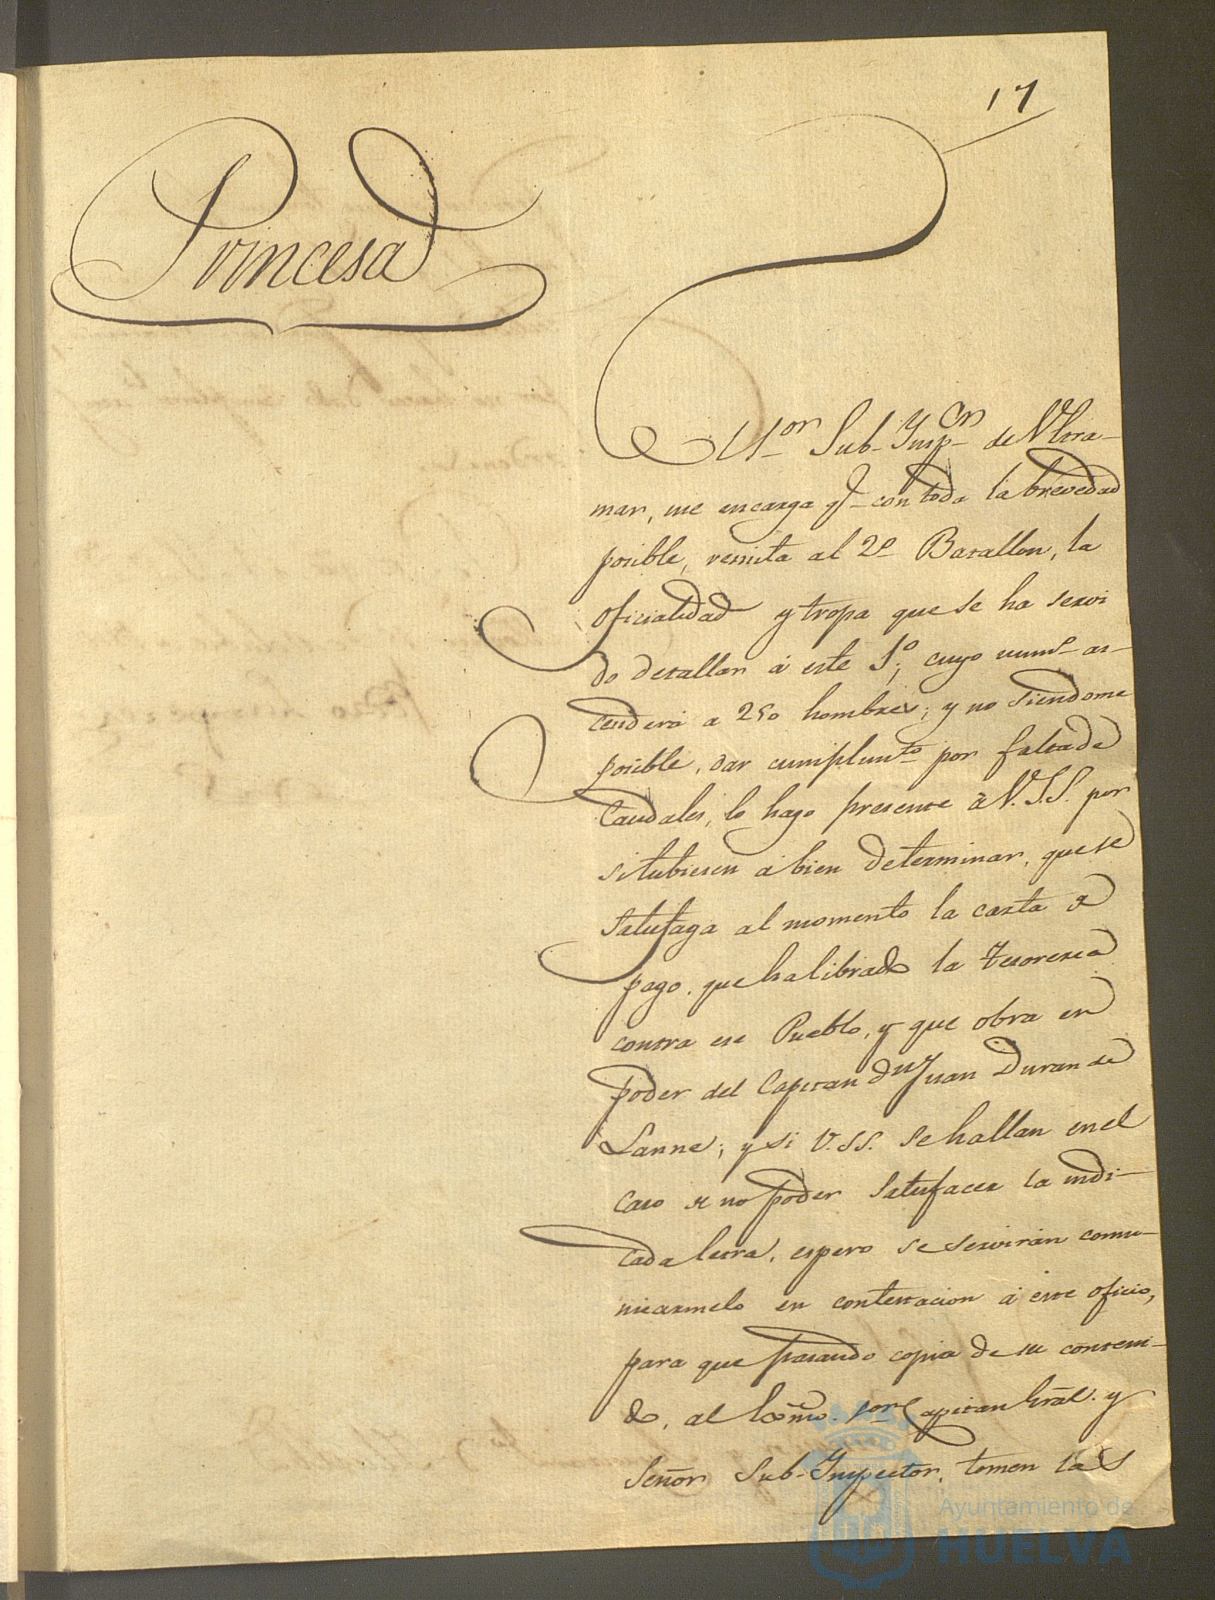 17
Princesa
El Sor Sub-Ynspcn de Vltra-
mar, me encarga qe con toda la brevedad
posible, remita al 2º Batallon, la
oficialidad y tropa que se ha servi
do detallar á este 1º; cuyo numº as-
cenderá a 250 hombres; y no siendome
posible, dar cumplimto por falta de
Caudales, lo hago presente á V.S.S. por
si tubiesen á bien determinar, que se
satisfaga al momento la carta de
pago que ha librado la Tesoreria
contra ese Pueblo, y que obra en
poder del Capitan dn Juan Duran de
Lanne; y si V.SS. se hallan en el
caso de no poder satisfacer la indi-
cada letra, espero se serviran comu-
nicarmelo en contestacion á este oficio,
para que pasando copia de su conteni-
do, al Exmo. Sor Capitan Gral. y
Señor Sub-Ynspector, tomen las
Ayuntamiento de
HUELVA